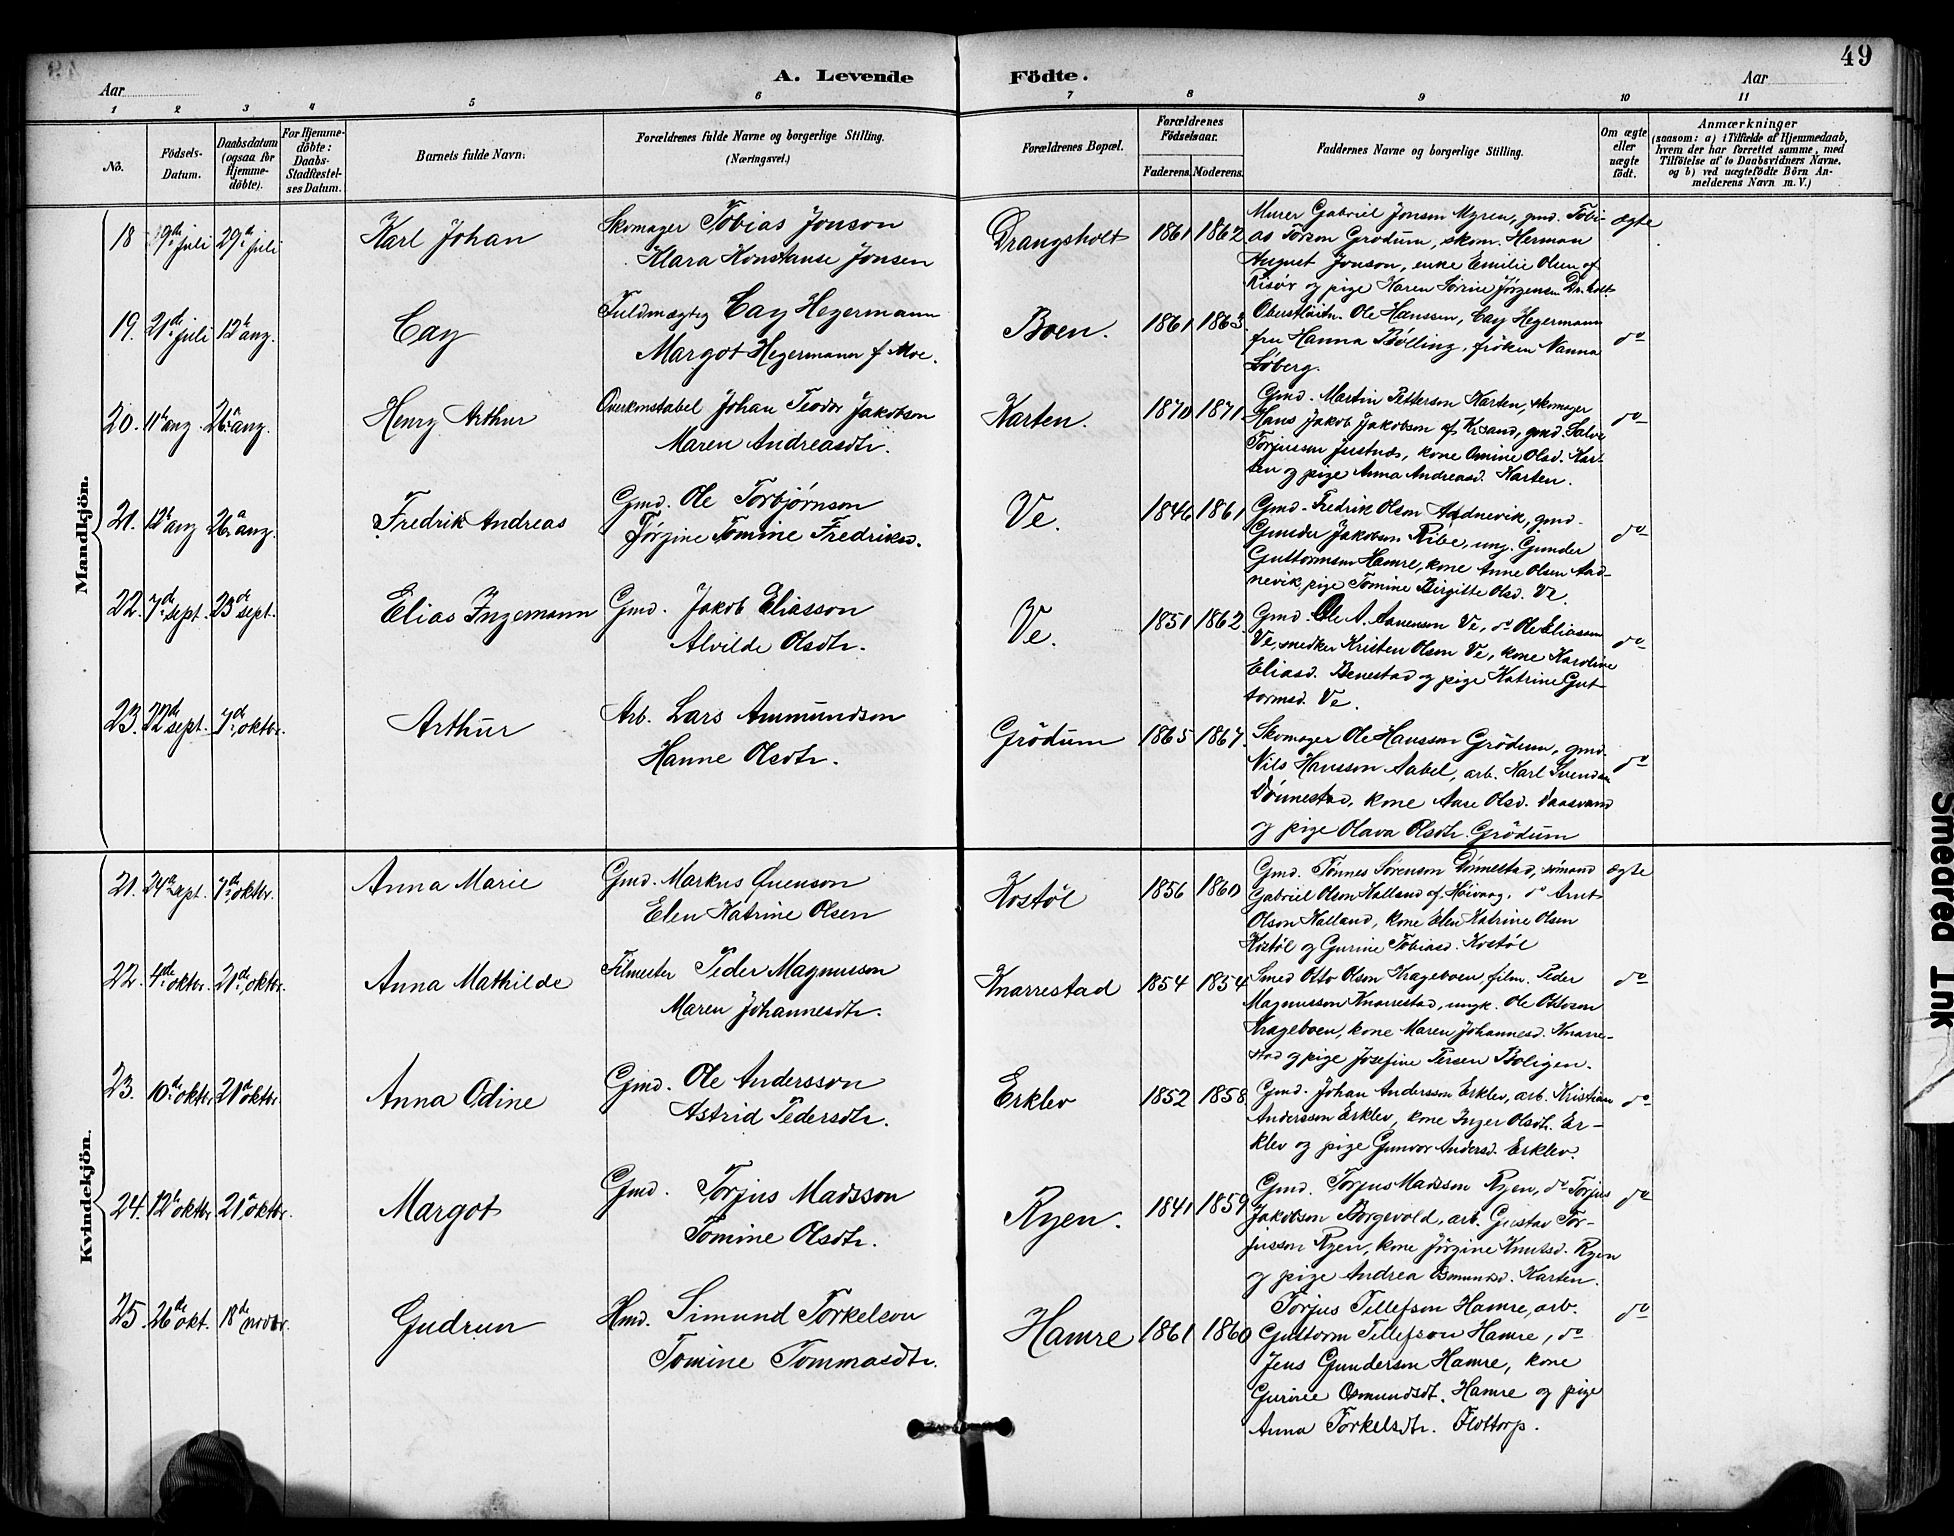 49
Aar
A. Levende Födte.
Aar
1 2 3 4 5 6 7 8 9 10 11
No.
Födsels-Datum.
Daabsdatum (ogsaa for Hjemme-döbte).
For Hjemme-döbte: Daabs-Stadfæstel-ses Datum.
Barnets fulde Navn.
Forældrenes fulde Navne og borgerlige Stilling. (Næringsvei.)
Forældrenes Bopæl.
Forældrenes Födselsaar.
Faderens. Moderens.
Faddernes Navne og borgerlige Stilling.
Om ægte eller uægte født.
Anmærkninger
(saasom: a) i Tilfælde af Hjemmedaab,
hvem der har forrettet samme, med
Tilföielse af to Daabsvidners Navne,
og b) ved uægtefödte Börn An-
melderens Navn m. V.)
Mandkjön.
18 9de juli 29de juli Karl Johan
Skomager Tobias Jonson
Klara Konstanse Jonsen
Drangsholt 1861 1862
Murer Gabriel Jonsen Myren, gmd. Tobi-
as Torson Grödum, skom. Herman
August Jonson, enke Emilie Olsen af
Risör og pige Karen Sörine Jörgensen Dr.holt.
ægte
19. 21de juli 12te aug. Cay
Fuldmægtig Cay Hegermann
Margot Hegermann f. Moe.
Boen. 1861 1863
Oberstlöitn. Ole Hanssen, Cay Hegermann
fru Hanna Bölling, fröken Nanna
Soberg.
do
20. 11te aug. 26de aug. Henry Arthur
Overkonstabel Johan Teodor Jakobson
Maren Andreasdtr.
Karten. 1870 1871
Gmd. Martin Petterson Karten, skomager
Hans Jakob Jakobson af Krsand, gmd. Salve
Torjusson Justnæs, kone Omine Olsd. Kar-
ten og pige Anna Andreasd. Karten.
do
21. 12te aug 26de aug. Fredrik Andreas
Gmd. Ole Torbjørnson
Jörgine Tomine Fredriksd.
Ve. 1846 1861
Gmd. Fredrik Olson Aadnevik, gmd.
Gunder Jakobson Ribe, ung. Gunder
Guttormson Hamre, kone Anne Olsen Aad-
nevik, pige Tomine Birgitte Olsd. Ve.
do
22. 7de sept. 23de sept. Elias Ingemann
Gmd. Jakob Eliasson
Alvilde Olsdtr.
Ve. 1851 1862
Gmd. Ole A. Aanenson Ve, do Ole Eliasson
Ve, snedker Kristen Olson Ve, kone Karoline
Eliasd. Benestad og pige Katrine Gut-
tormsd. Ve.
do
23. 22de sept. 7de oktbr. Arthur
Arb. Lars Ammundson
Hanne Olsdtr.
Grödum 1865 1867
Skomager Ole Hansson Grödum, gmd.
Nils Hansson Aabel, arb. Karl Svendsen
Dönnestad, kone Aase Olsd. Daasvand
og pige Olava Olsdtr. Grödum
do
Kvindekjön.
21. 24de sept. 7de oktbr. Anna Marie
Gmd. Markus Ouenson
Elen Katrine Olsen
Kostöl 1856 1860
Gmd. Tönnes Sörenson Dönnestad, sömand
Gabriel Olson Kalland af Höivaag, do Arnt
Olson Kalland, kone Elen Katrine Olsen
Kostöl og Gurine Tobiasd. Kostöl
ægte
22. 4de oktbr. 21de oktbr. Anna Mathilde
Filmester Peder Magnusson
Maren Johannesdtr.
Knarrestad 1854 1854
Smed Otto Olson Krageboen, film. Peder
Magnusson Knarrestad, ungk. Ole Ottoson
Krageboen, kone Maren Johannesd. Knarre-
stad og pige Josefine Persen Boligen.
do
23. 10de oktbr 21de oktbr. Anna Odine
Gmd. Ole Andersson
Astrid Pedersdtr.
Erklev 1852 1858
Gmd. Johan Andersson Erklev, arb. Kristian
Andersson Erklev, kone Inger Olsdtr. Er-
klev og pige Gunvor Andersd. Erklev.
do
24. 12te oktbr 21de oktbr. Margot
Gmd. Torjus Madsson
Tomine Olsdtr.
Ryen. 1841 1859
Gmd. Torjus Madsson Ryen, do Torjus
Jakobson Borgevold, arb. Gustav Tor-
jusson Ryen, kone Jörgine Knutsd. Ryen
og pige Andrea Osmundsd. Karten.
do
25. 26de okt. 18de novbr. Gudrun
Hmd. Simund Torkelson
Tomine Tommasdtr.
Hamre 1861 1860
Torjus Tellefson Hamre, arb.
Guttorm Tellefson Hamre, do
Jens Gunderson Hamre, kone
Gurine Osmundsdt. Hamre og pige
Anna Torkelsdtr. Flottorp.
do
Smeared Ink